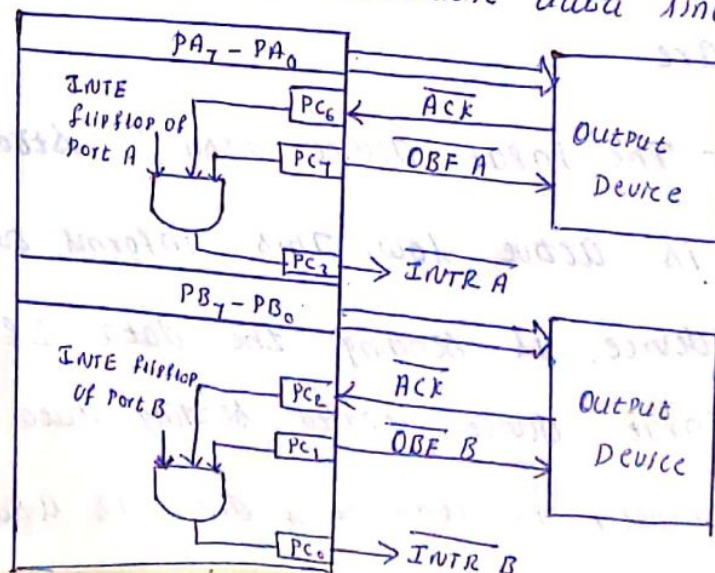 data
PA7 - PA0
are
INTE
flipflop of
Port A
PC6
ACK
PC7
OBF A
OUTPUT
Device
PC3
INTR A
PB7 - PB0
INTE flipflop
of Port B
PC2
ACK
PC1
OBF B
OUTPUT
Device
PC0
INTR B